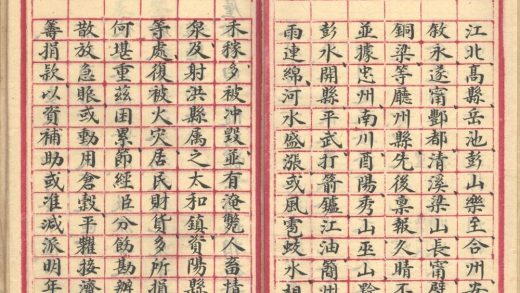 江北高縣岳池彭山樂至合州安
敘永遂甯酆都清溪梁山長甯壁
銅梁等廳州縣先後稟報久晴不
並據忠州南川酉陽秀山巫山黔
彭水開縣平武打箭鑪江油簡州
雨連綿河水盛漲或風雹蛟水相
禾稼多被冲毀並有淹斃人畜情
泉及射洪縣属之太和鎮資陽縣
等處復被火灾居民財貨多所損
何堪重兹囯累節經臣分飭勘辦
散放急賑或動用倉榖平糶接濟
籌捐款以資補助或准減派明年